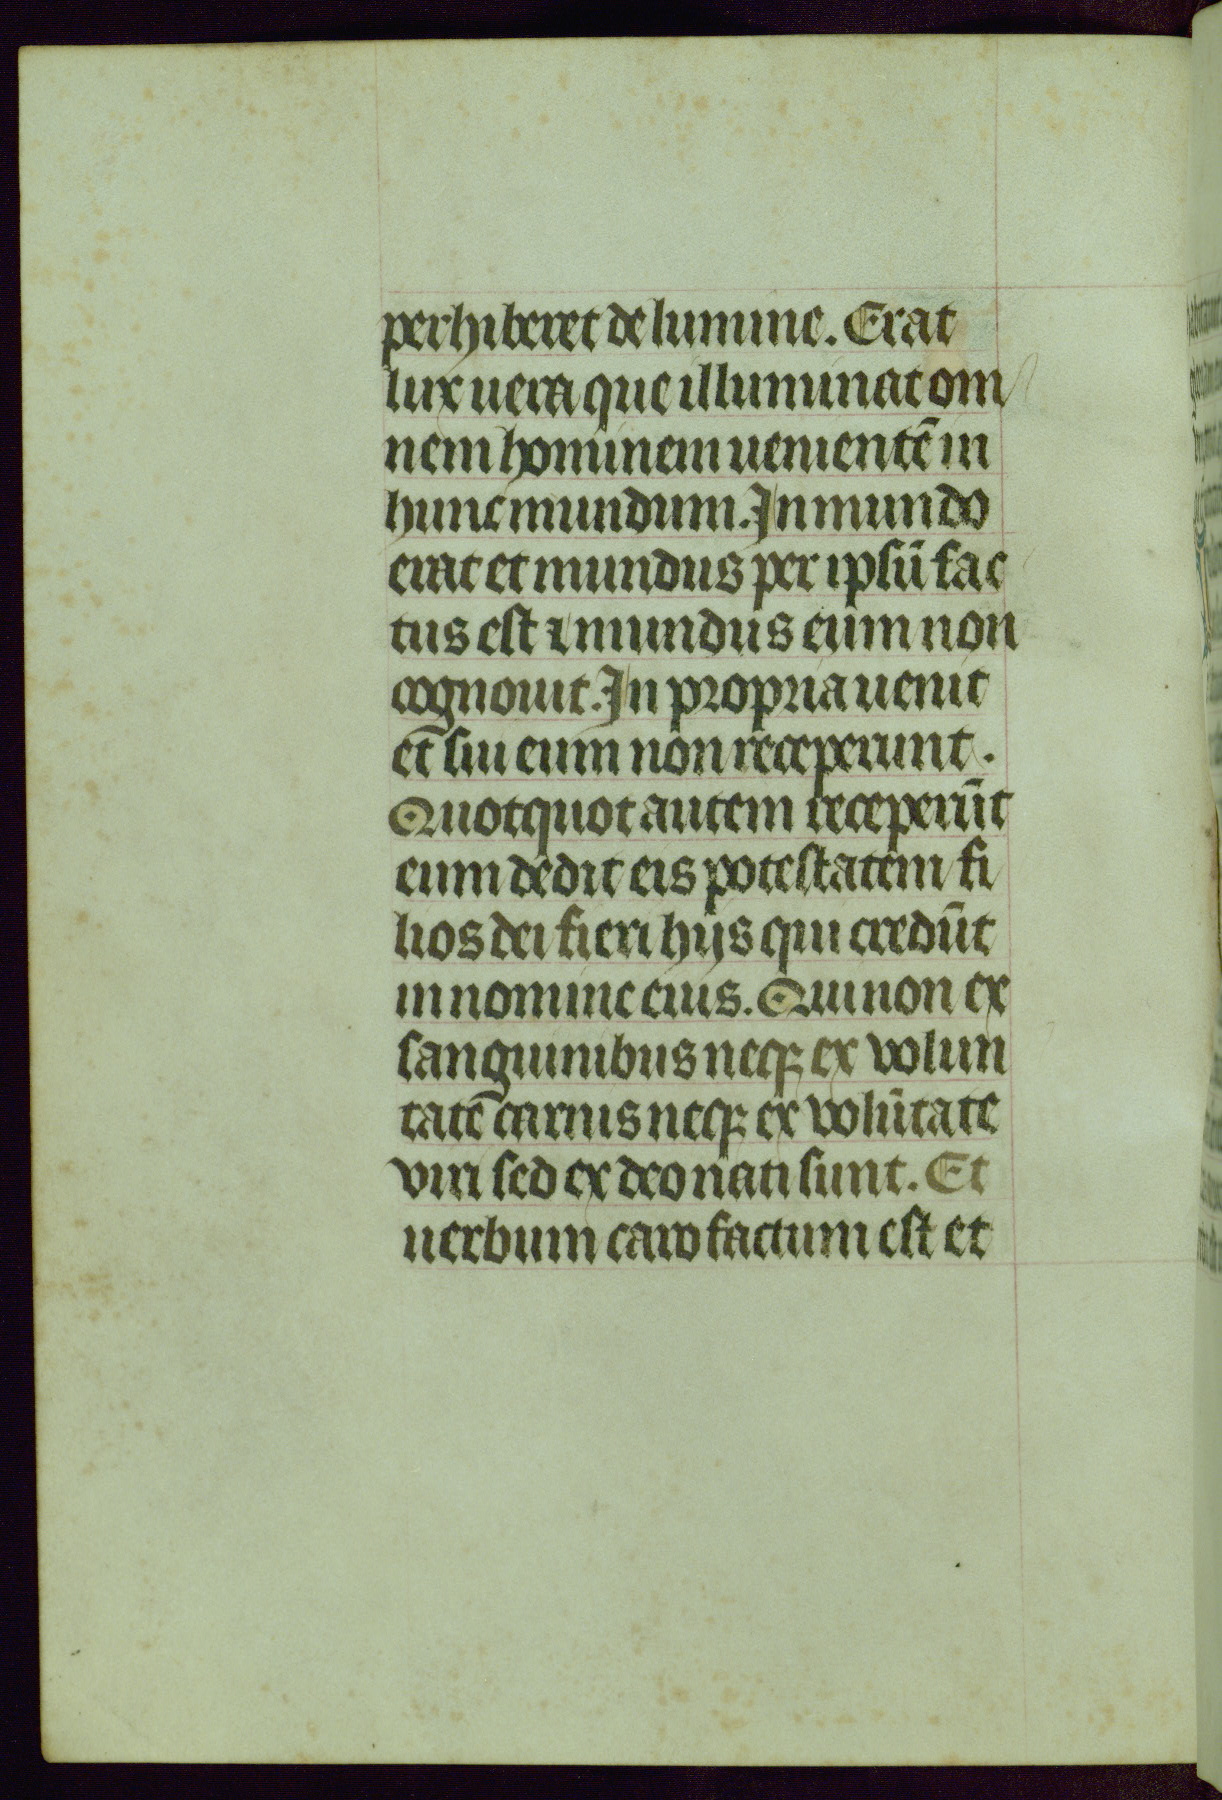 perhiberet de lumine. Erat
lux uera que illuminat om
nem hominem uenientē in
hunc mundum. In mundo
erat et mundus per ipsū fac
tus est ⁊ mundus eum non
cognouit. In propria uenit
et sui eum non receperunt.
Quotquot autem receperūt
eum dedit eis potestatem fi
lios dei fieri hijs qui credūt
in nomine eius. Qui non ex
sanguinibus neqꝫ ex volun
tatē carnis neqꝫ ex volūtate
viri sed ex deo nati sunt. Et
uerbum caro factum est et